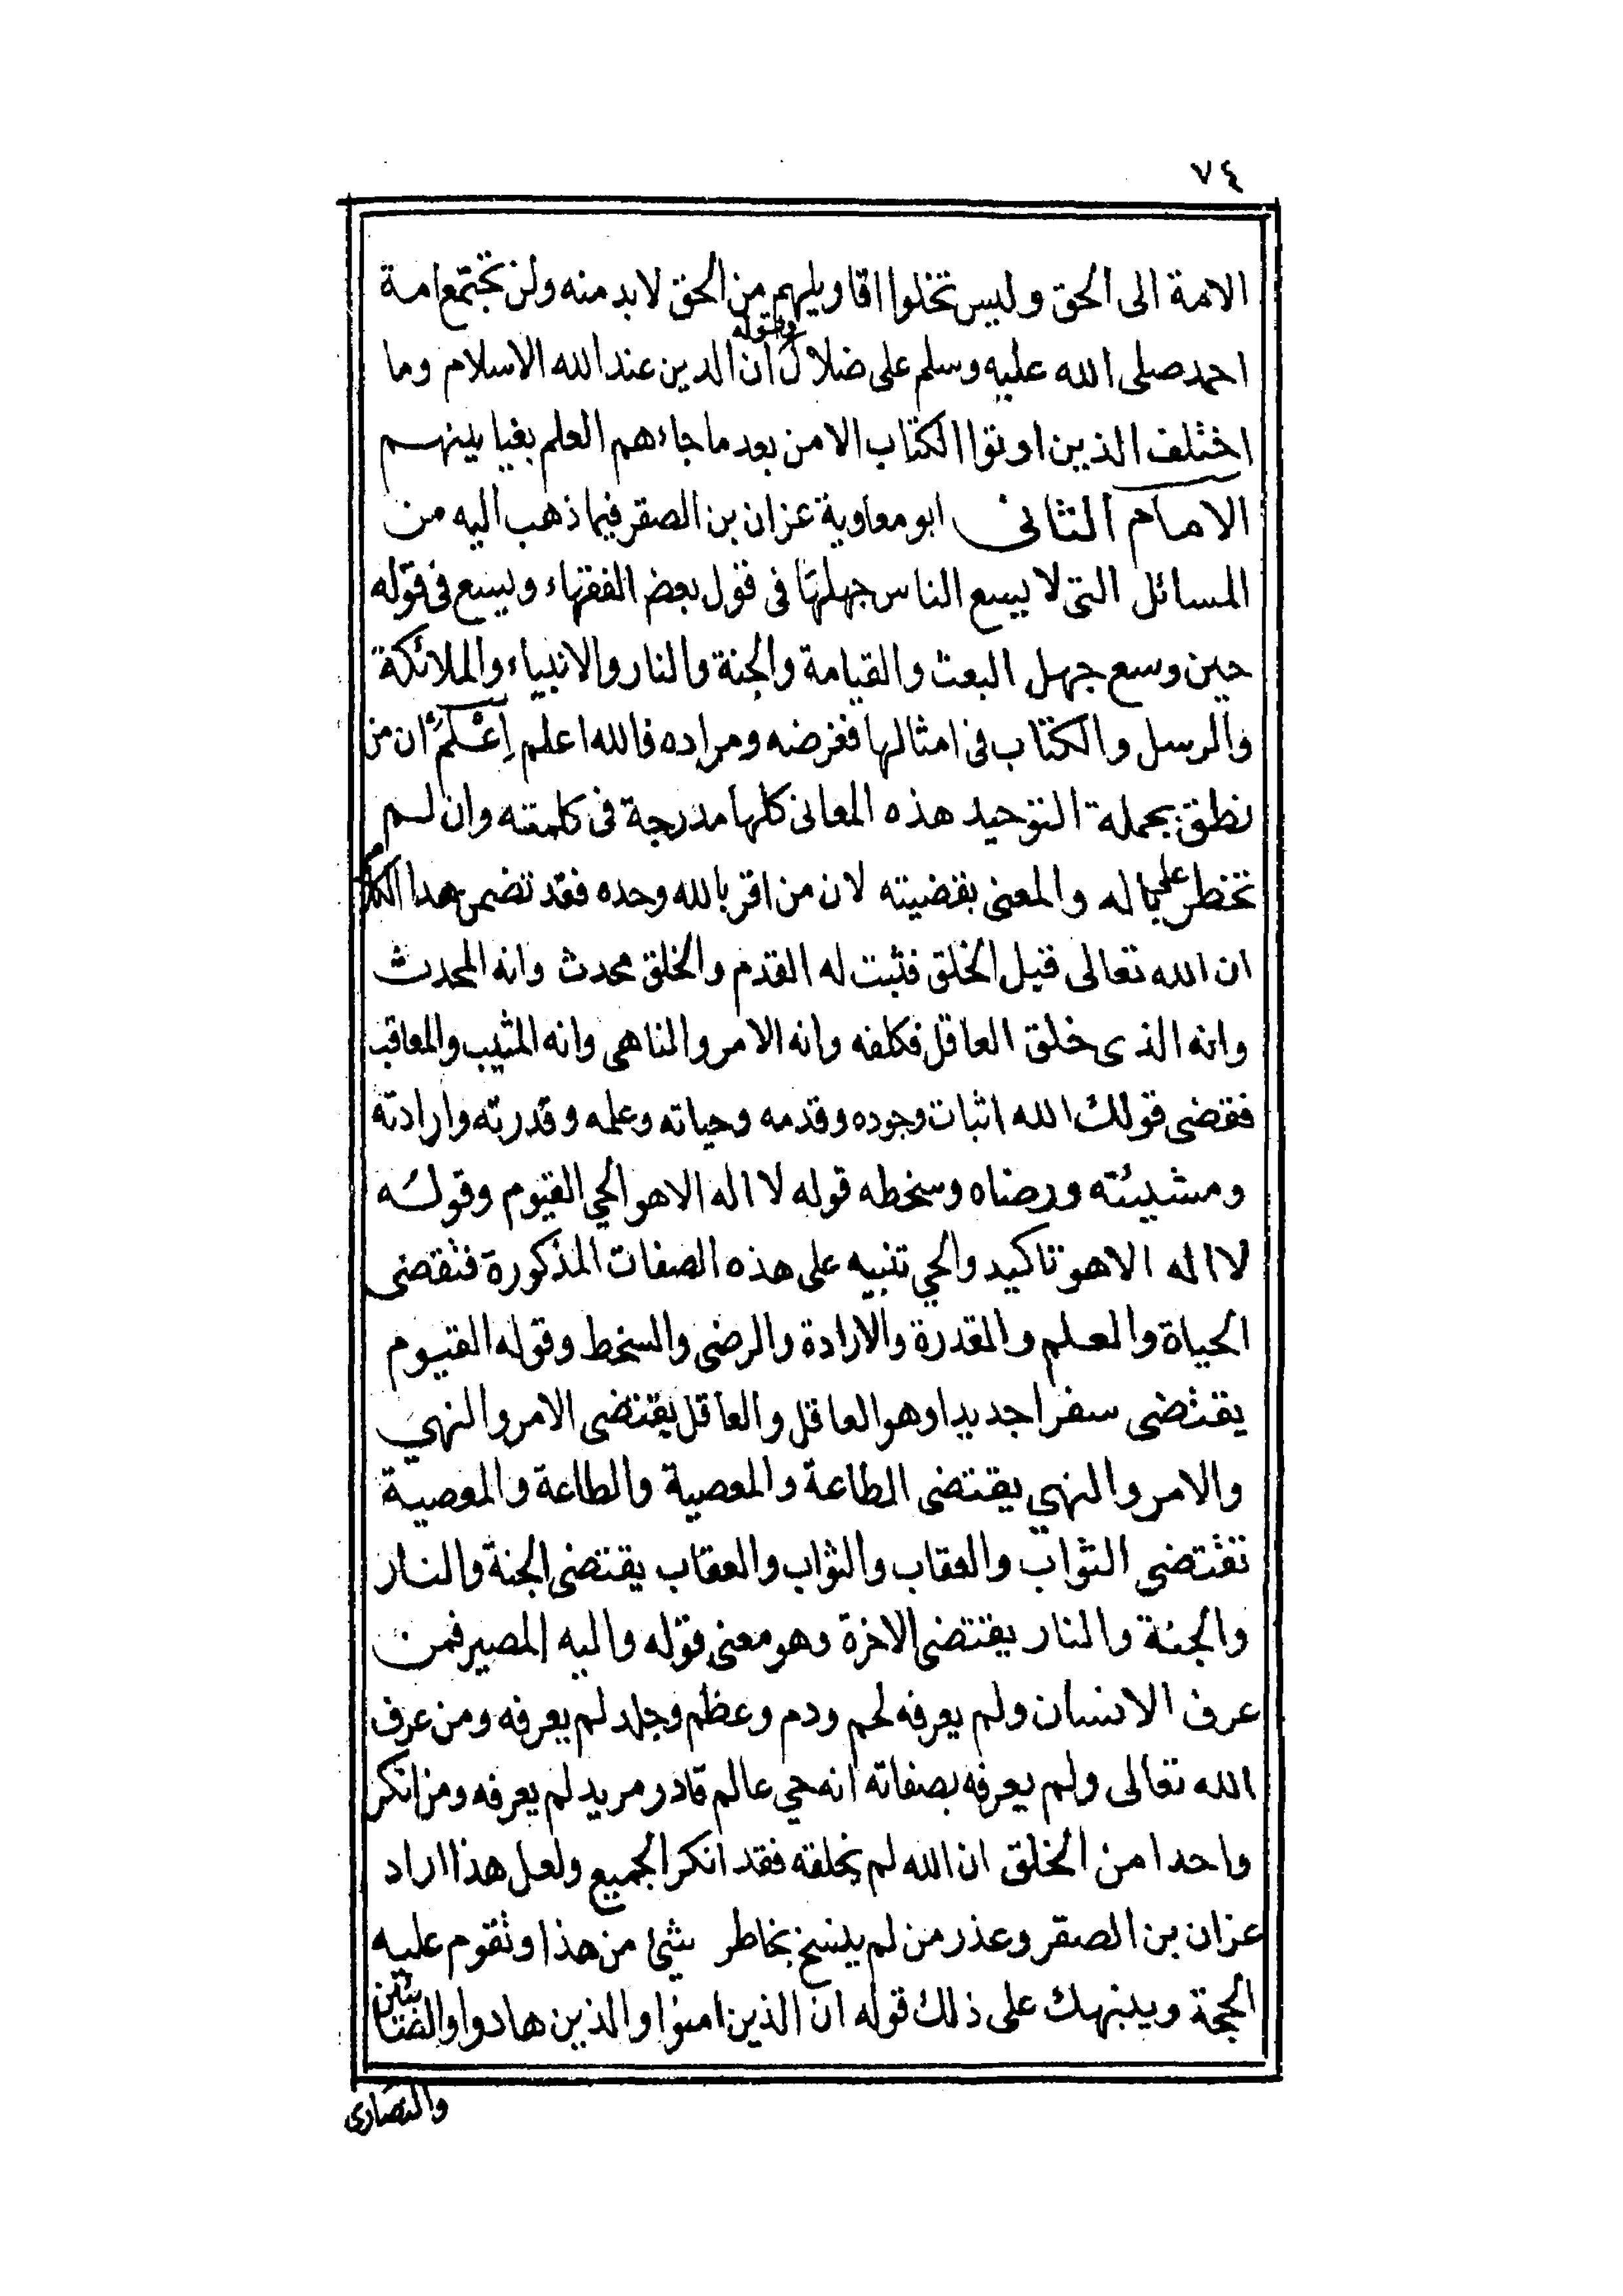 ٧٤
الامة الى الحق وليس تخلوا اقاويلهم من الحق لابد منه ولن تجتمع امة
احمد صلى الله عليه وسلم على ضلال وقوله ان الدين عند الله الاسلام وما
اختلف الذين اوتوا الكتاب الا من بعد ما جاءهم العلم بغيا بينهم
الامام الثانى ابو معاوية عزان بن الصقر فيما ذهب اليه من
المسائل التى لا يسع الناس جهلها فى قول بعض الفقهاء ويسع فى قوله
حين وسع جهل البعث والقيامة والجنة والنار والانبياء والملائكة
والرسل والكتاب فى امثالها فغرضه ومراده فالله اعلم اِعْلَمْ ان من
نطق بجملة التوحيد هذه المعانى كلها مدرجة فى كلمته وان لم
تخطر على باله والمعنى بقضيته لان من اقر بالله وحده فقد تضمن هذا الكلام
ان الله تعالى قبل الخلق فثبت له القدم والخلق محدث وانه المحدث
وانه الذى خلق العاقل فكلفه وانه الامر والناهى وانه المثيب والمعاقب
فقضى قولك الله اثبات وجوده وقدمه وحياته وعلمه وقدرته وارادته
ومشيئته ورضاه وسخطه قوله لا اله الا هو الحي القيوم وقوله
لا اله الا هو تاكيد والحي تنبيه على هذه الصفات المذكورة فتقضى
الحياة والعلم والقدرة والارادة والرضى والسخط وقوله القيوم
يقتضى سفرا جديدا وهو العاقل والعاقل يقتضى الامر والنهي
والامر والنهي يقتضى الطاعة والمعصية والطاعة والمعصية
تقتضى الثواب والعقاب والثواب والعقاب يقتضى الجنة والنار
والجنة والنار يقتضى الاخرة وهو معنى قوله واليه المصير فمن
عرف الانسان ولم يعرفه لحم ودم وعظم وجلد لم يعرفه ومن عرف
الله تعالى ولم يعرفه بصفاته انه حي عالم قادر مريد لم يعرفه ومن انكر
واحدا من الخلق ان الله لم يخلقه فقد انكر الجميع ولعل هذا اراد
عزان بن الصقر وعذر من لم يسنح بخاطر شئ من هذا وتقوم عليه
الحجة وينبهك على ذلك قوله ان الذين امنوا والذين هادوا والصابئين
والنصارى